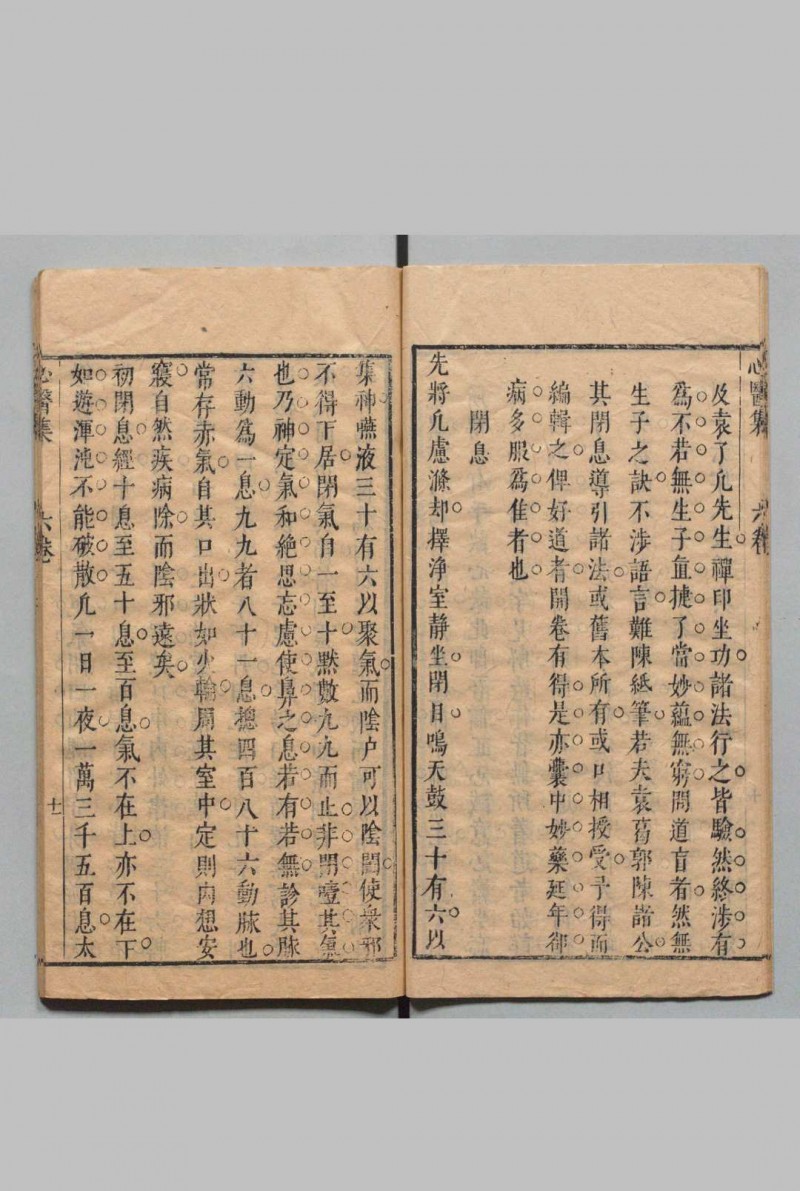 心醫集 六卷
及袁了凡先生禪印坐功諸法行之皆驗然終涉有
爲不若無生子直捷了當妙蘊無窮問道盲者然無
生子之訣不涉語言難陳紙筆若夫袁葛郭陳諸公
其閉息導引諸法或舊本所有或口相授受予得而
編輯之俾好道者開卷有得是亦囊中妙藥延年卻
病多服爲佳者也
閉息
先將凡慮滌却擇淨室静坐閉目鳴天鼓三十有六以
集神嚥液三十有六以聚氣而陰户可以陰閉使衆邪
不得下居閉氣自一至十黙數九九而止非閉噎其氣
也乃神定氣和絶思忘慮使鼻之息若有若無診其脉
六動爲一息九九者八十一息摠四百八十六動脉也
常存赤氣自其口出狀如火輪周其室中定則内想安
寢自然疾病除而陰邪遠矣
初閉息經十息至五十息至百息氣不在上亦不在下
如遊渾沌不能破散凡一日一夜一萬三千五百息太
心醫集 六卷 十二